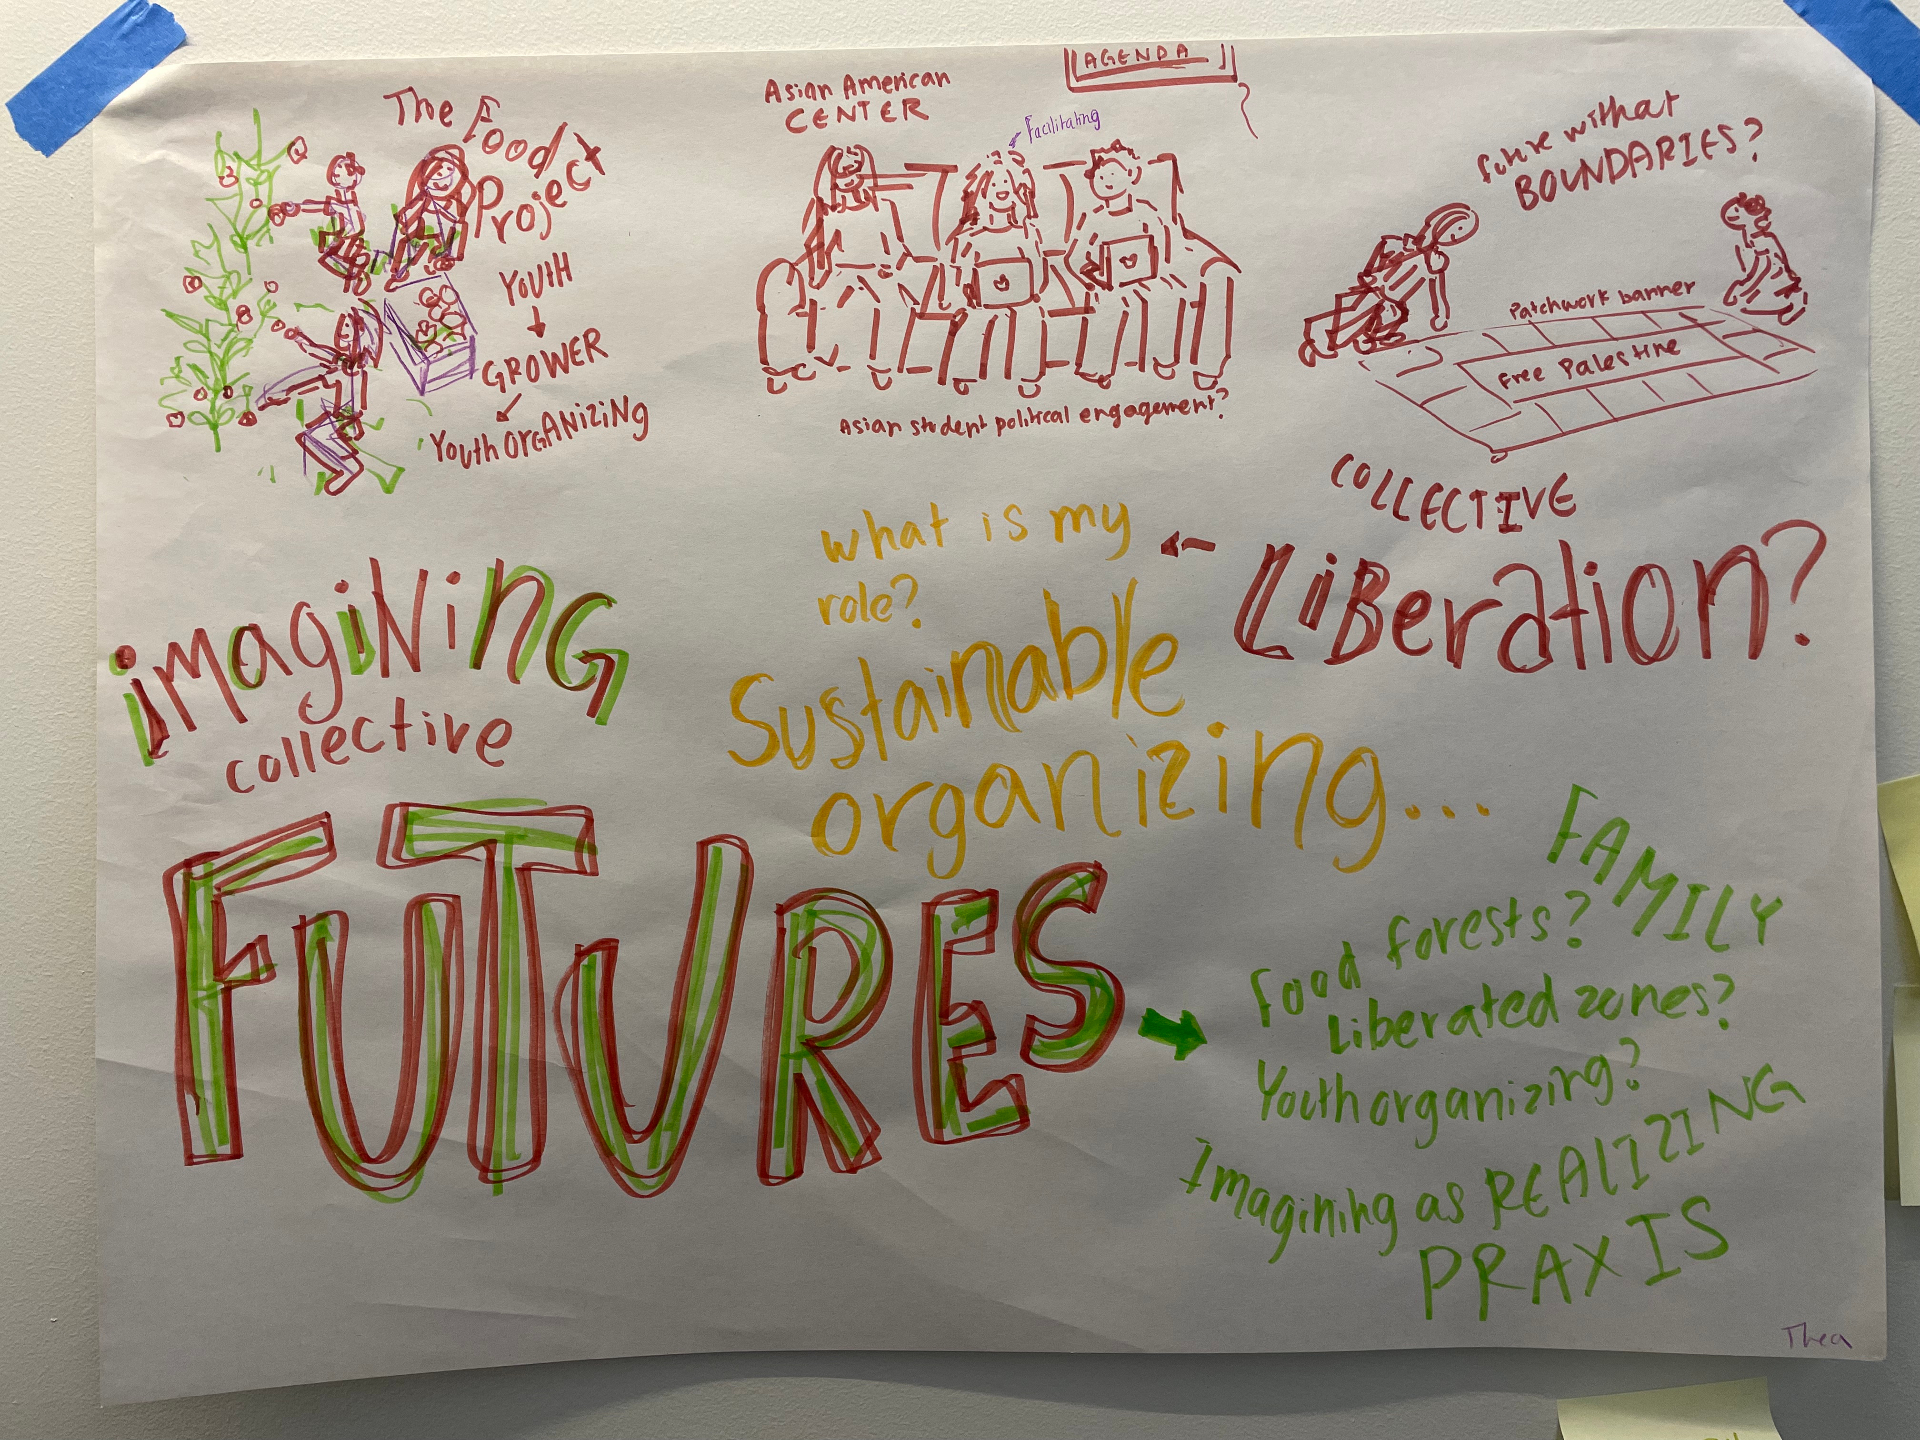 The Food
Project
YOUTH
GROWER
Youth ORGANIZING
Asian American
CENTER
AGENDA
Facilitating
Asian student political engagement?
future without
BOUNDARIES?
Patchwork banner
Free Palestine
COLLECTIVE
LiBeration?
what is my
role?
Sustainable
organizing...
imagining
collective
FUTURES
FAMILY
Food forests?
Liberated zones?
Youth organizing?
Imagining as REALIZING
PRAXIS
Thea